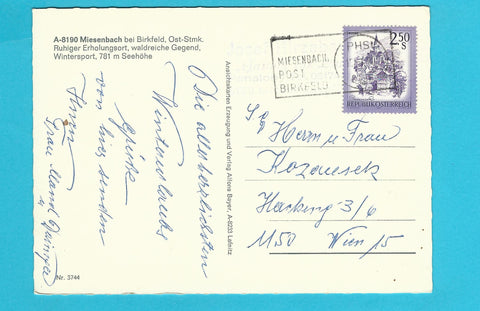 A-8190 Miesenbach bei Birkfeld, Ost-Stmk.
Ruhiger Erholungsort, waldreiche Gegend,
Wintersport, 781 m Seehöhe
Die allerherzlichsten
Winterurlaubs
grüße
von hier senden
Ihnen
Frau
Nr. 3744
Ansichtskarten Erzeugung und Verlag Alfons Beyer, A-8233 Lafnitz
MIESENBACH,
POST
BIRKFELD
2.50
S
REPUBLIK ÖSTERREICH
Herrn u Frau
Hacking 3/6
1150 Wien 15